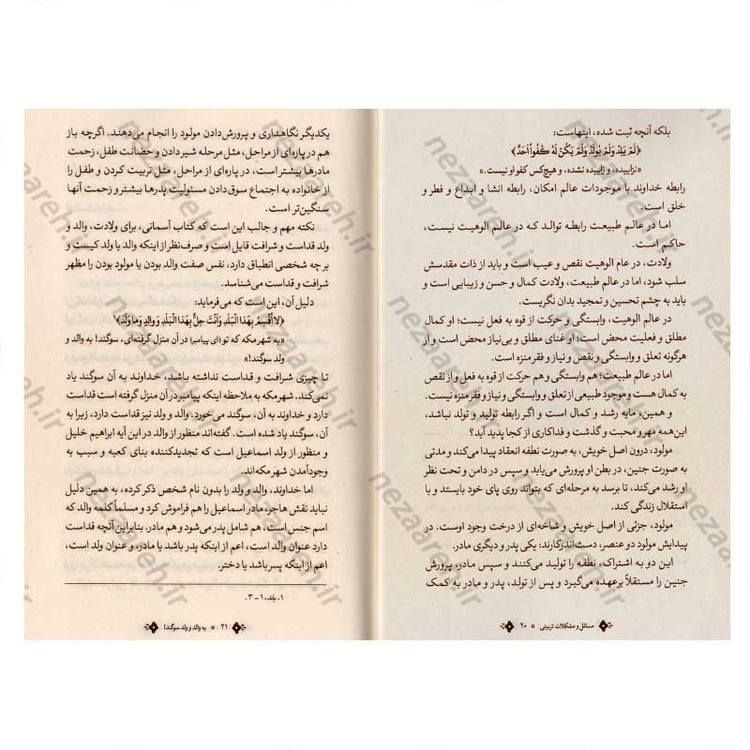 بلکه آنچه ثبت شده، اینهاست:
﴿لَمْ یَلِدْ وَلَمْ یُولَدْ وَلَمْ یَکُنْ لَهُ کُفُواً أَحَدٌ﴾
«نزاییده، و زاییده نشده، و هیچ‌کس کفو او نیست.»
رابطه خداوند با موجودات عالم امکان، رابطه انشا و ابداع و فطر و
خلق است.
اما در عالم طبیعت رابطه توالد که در عالم الوهیت نیست،
حاکم است.
ولادت، در عالم الوهیت نقص و عیب است و باید از ذات مقدسش
سلب شود، اما در عالم طبیعت، ولادت کمال و حسن و زیبایی است و
باید به چشم تحسین و تمجید بدان نگریست.
در عالم الوهیت، وابستگی و حرکت از قوه به فعل نیست؛ او کمال
مطلق و فعلیت محض است؛ او غنای مطلق و بی‌نیاز محض است و از
هرگونه تعلق و وابستگی و نقص و نیاز و فقر منزه است.
اما در عالم طبیعت؛ هم وابستگی و هم حرکت از قوه به فعل و از نقص
به کمال هست و موجود طبیعی از تعلق و وابستگی و نیاز و فقر منزه نیست.
و همین، مایه رشد و کمال است و اگر رابطه تولید و تولد نباشد،
این‌همه مهر و محبت و گذشت و فداکاری از کجا پدید آید؟
مولود، درون اصل خویش، به صورت نطفه انعقاد پیدا می‌کند و مدتی
به صورت جنین، در بطن او پرورش می‌یابد و سپس در دامن و تحت نظر
او رشد می‌کند، تا برسد به مرحله‌ای که بتواند روی پای خود بایستد و با
استقلال زندگی کند.
مولود، جزئی از اصل خویش و شاخه‌ای از درخت وجود اوست. در
پیدایش مولود دو عنصر، دست‌اندرکارند: یکی پدر و دیگری مادر.
این دو به اشتراک، نطفه را تولید می‌کنند و سپس مادر، پرورش
جنین را مستقلاً برعهده می‌گیرد و پس از تولد، پدر و مادر به کمک
مسائل و مشکلات تربیتی ۲۰
یکدیگر نگاهداری و پرورش‌دادن مولود را انجام می‌دهند. اگرچه باز
هم در پاره‌ای از مراحل، مثل مرحله شیر دادن و حضانت طفل، زحمت
مادرها بیشتر است، در پاره‌ای از مراحل، مثل تربیت کردن و طفل را
از خانواده به اجتماع سوق‌دادن مسئولیت پدرها بیشتر و زحمت آنها
سنگین‌تر است.
نکته مهم و جالب این است که کتاب آسمانی، برای ولادت، والد و
ولد قداست و شرافت قایل است و صرف‌نظر از اینکه والد یا ولد کیست و
بر چه شخصی انطباق دارد، نفس صفت والد بودن یا مولود بودن را مظهر
شرافت و قداست می‌شناسد.
دلیل آن، این است که می‌فرماید:
﴿لا أُقْسِمُ بِهَذَا الْبَلَدِ وَأَنْتَ حِلٌّ بِهَذَا الْبَلَدِ وَوَالِدٍ وَمَا وَلَدَ﴾۱
«به شهر مکه که تو (ای پیامبر) در آن منزل گرفته‌ای، سوگند! به والد و
ولد سوگند!»
تا چیزی شرافت و قداست نداشته باشد، خداوند به آن سوگند یاد
نمی‌کند. شهر مکه به ملاحظه اینکه پیامبر در آن منزل گرفته است قداست
دارد و خداوند به آن، سوگند می‌خورد. والد و ولد نیز قداست دارد، زیرا به
آن، سوگند یاد شده است. گفته‌اند منظور از والد در این آیه ابراهیم خلیل
و منظور از ولد اسماعیل است که تجدیدکننده بنای کعبه و سبب به
وجودآمدن شهر مکه‌اند.
اما خداوند، والد و ولد را بدون نام شخص ذکر کرده، به همین دلیل
نباید نقش هاجر، مادر اسماعیل را هم فراموش کرد و مسلماً کلمه والد که
اسم جنس است، هم شامل پدر می‌شود و هم مادر. بنابراین آنچه قداست
دارد عنوان والد است، اعم از اینکه پدر باشد یا مادر، و عنوان ولد است،
اعم از اینکه پسر باشد یا دختر.
۱. بلد، ۱-۳.
۲۱ به والد و ولد سوگند!
nezaareh.ir
nezaareh.ir
nezaareh.ir
nezaareh.ir
nezaareh.ir
nezaareh.ir